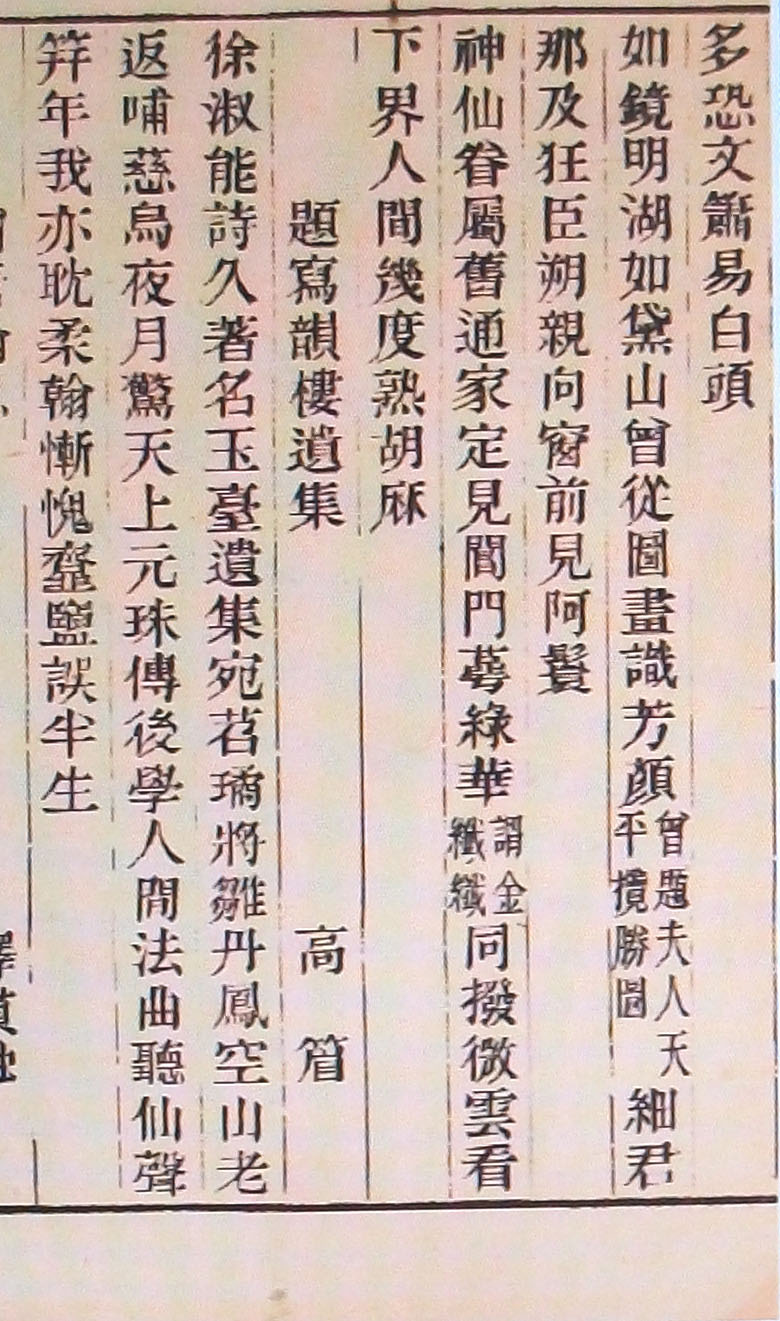 多恐文簫易白頭
如鏡明湖如黛山曾從圖畫識芳顏曾題夫人天平攬勝圖細君
那及狂臣朔親向窗前見阿鬟
神仙眷屬舊通家定見閶門萼綠華謂金纖纖同撥微雲看
下界人間幾度熟胡麻
題寫韻樓遺集
高篃
徐淑能詩久著名玉臺遺集宛苕璚將雛丹鳳空山老
返哺慈烏夜月驚天上元珠傳後學人間法曲聽仙聲
笄年我亦耽柔翰慚愧虀鹽誤半生